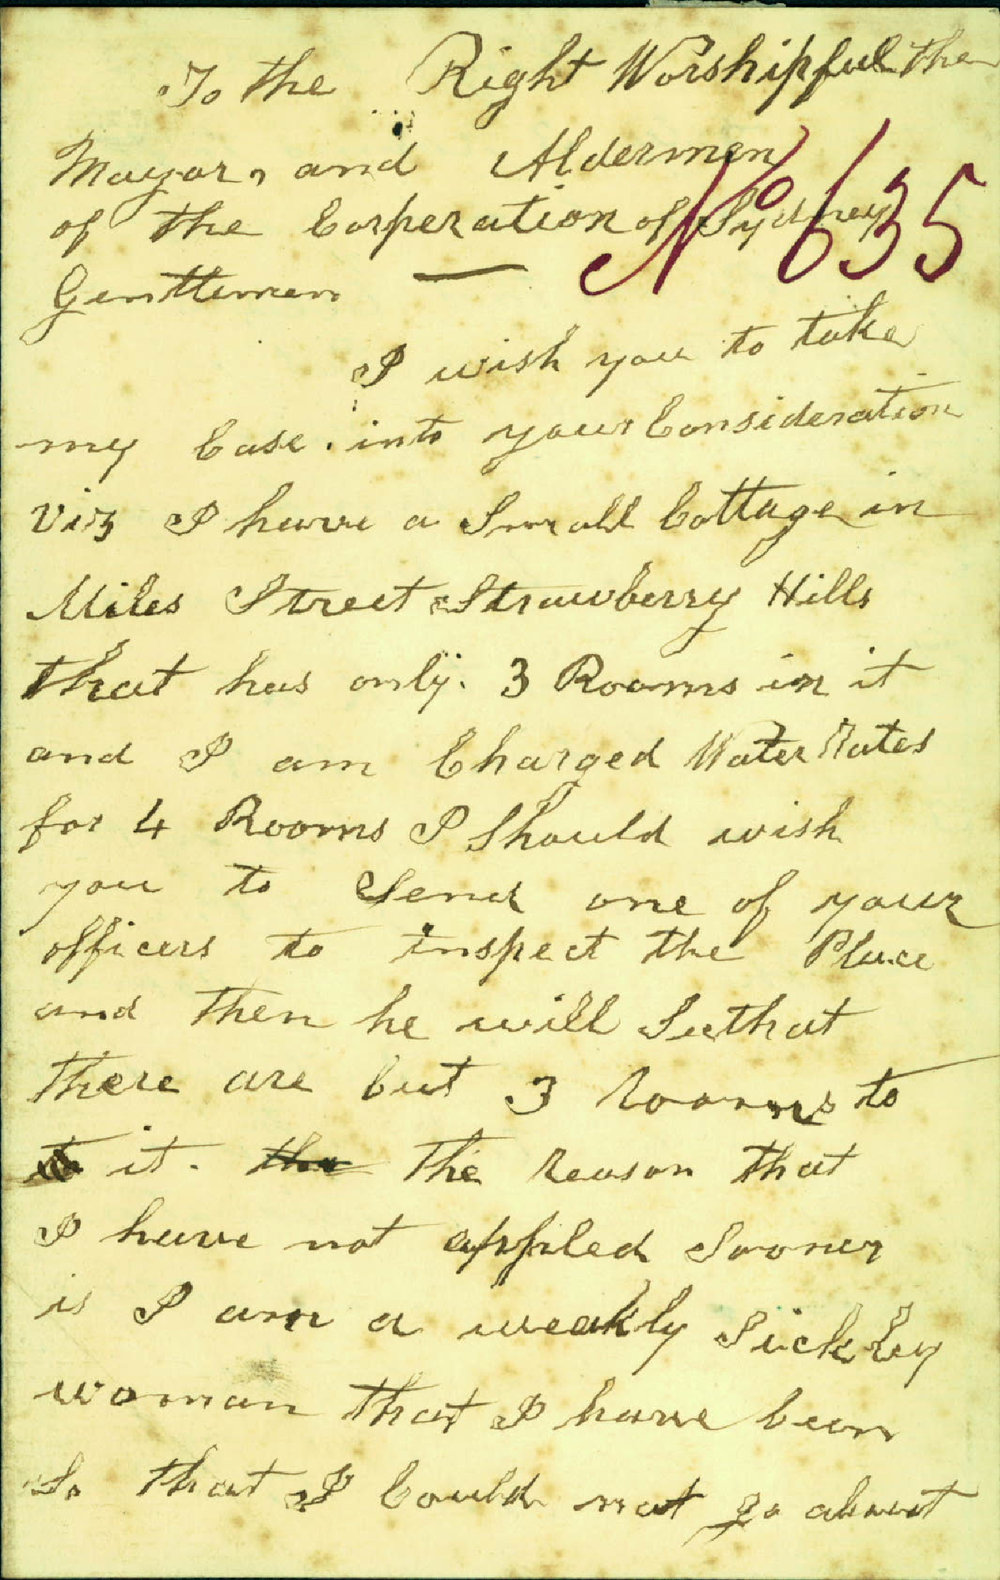 To the Right Worshipful the
Mayor, and Aldermen
of the Corperation of Sydney
No 635
Gentlemen —
I wish you to take
my Case into your Consideration
Viz I have a Small Cottage in
Miles Street Strawberry Hills
that has only 3 Rooms in it
and I am Charged Water Rates
for 4 Rooms I Should wish
you to Send one of your
officers to inspect the Place
and then he will See that
there are but 3 Rooms to
it. the The Reason that
I have not appiled Sooner
is I am a weakly Sickley
woman that I have been
So that I Could not go about